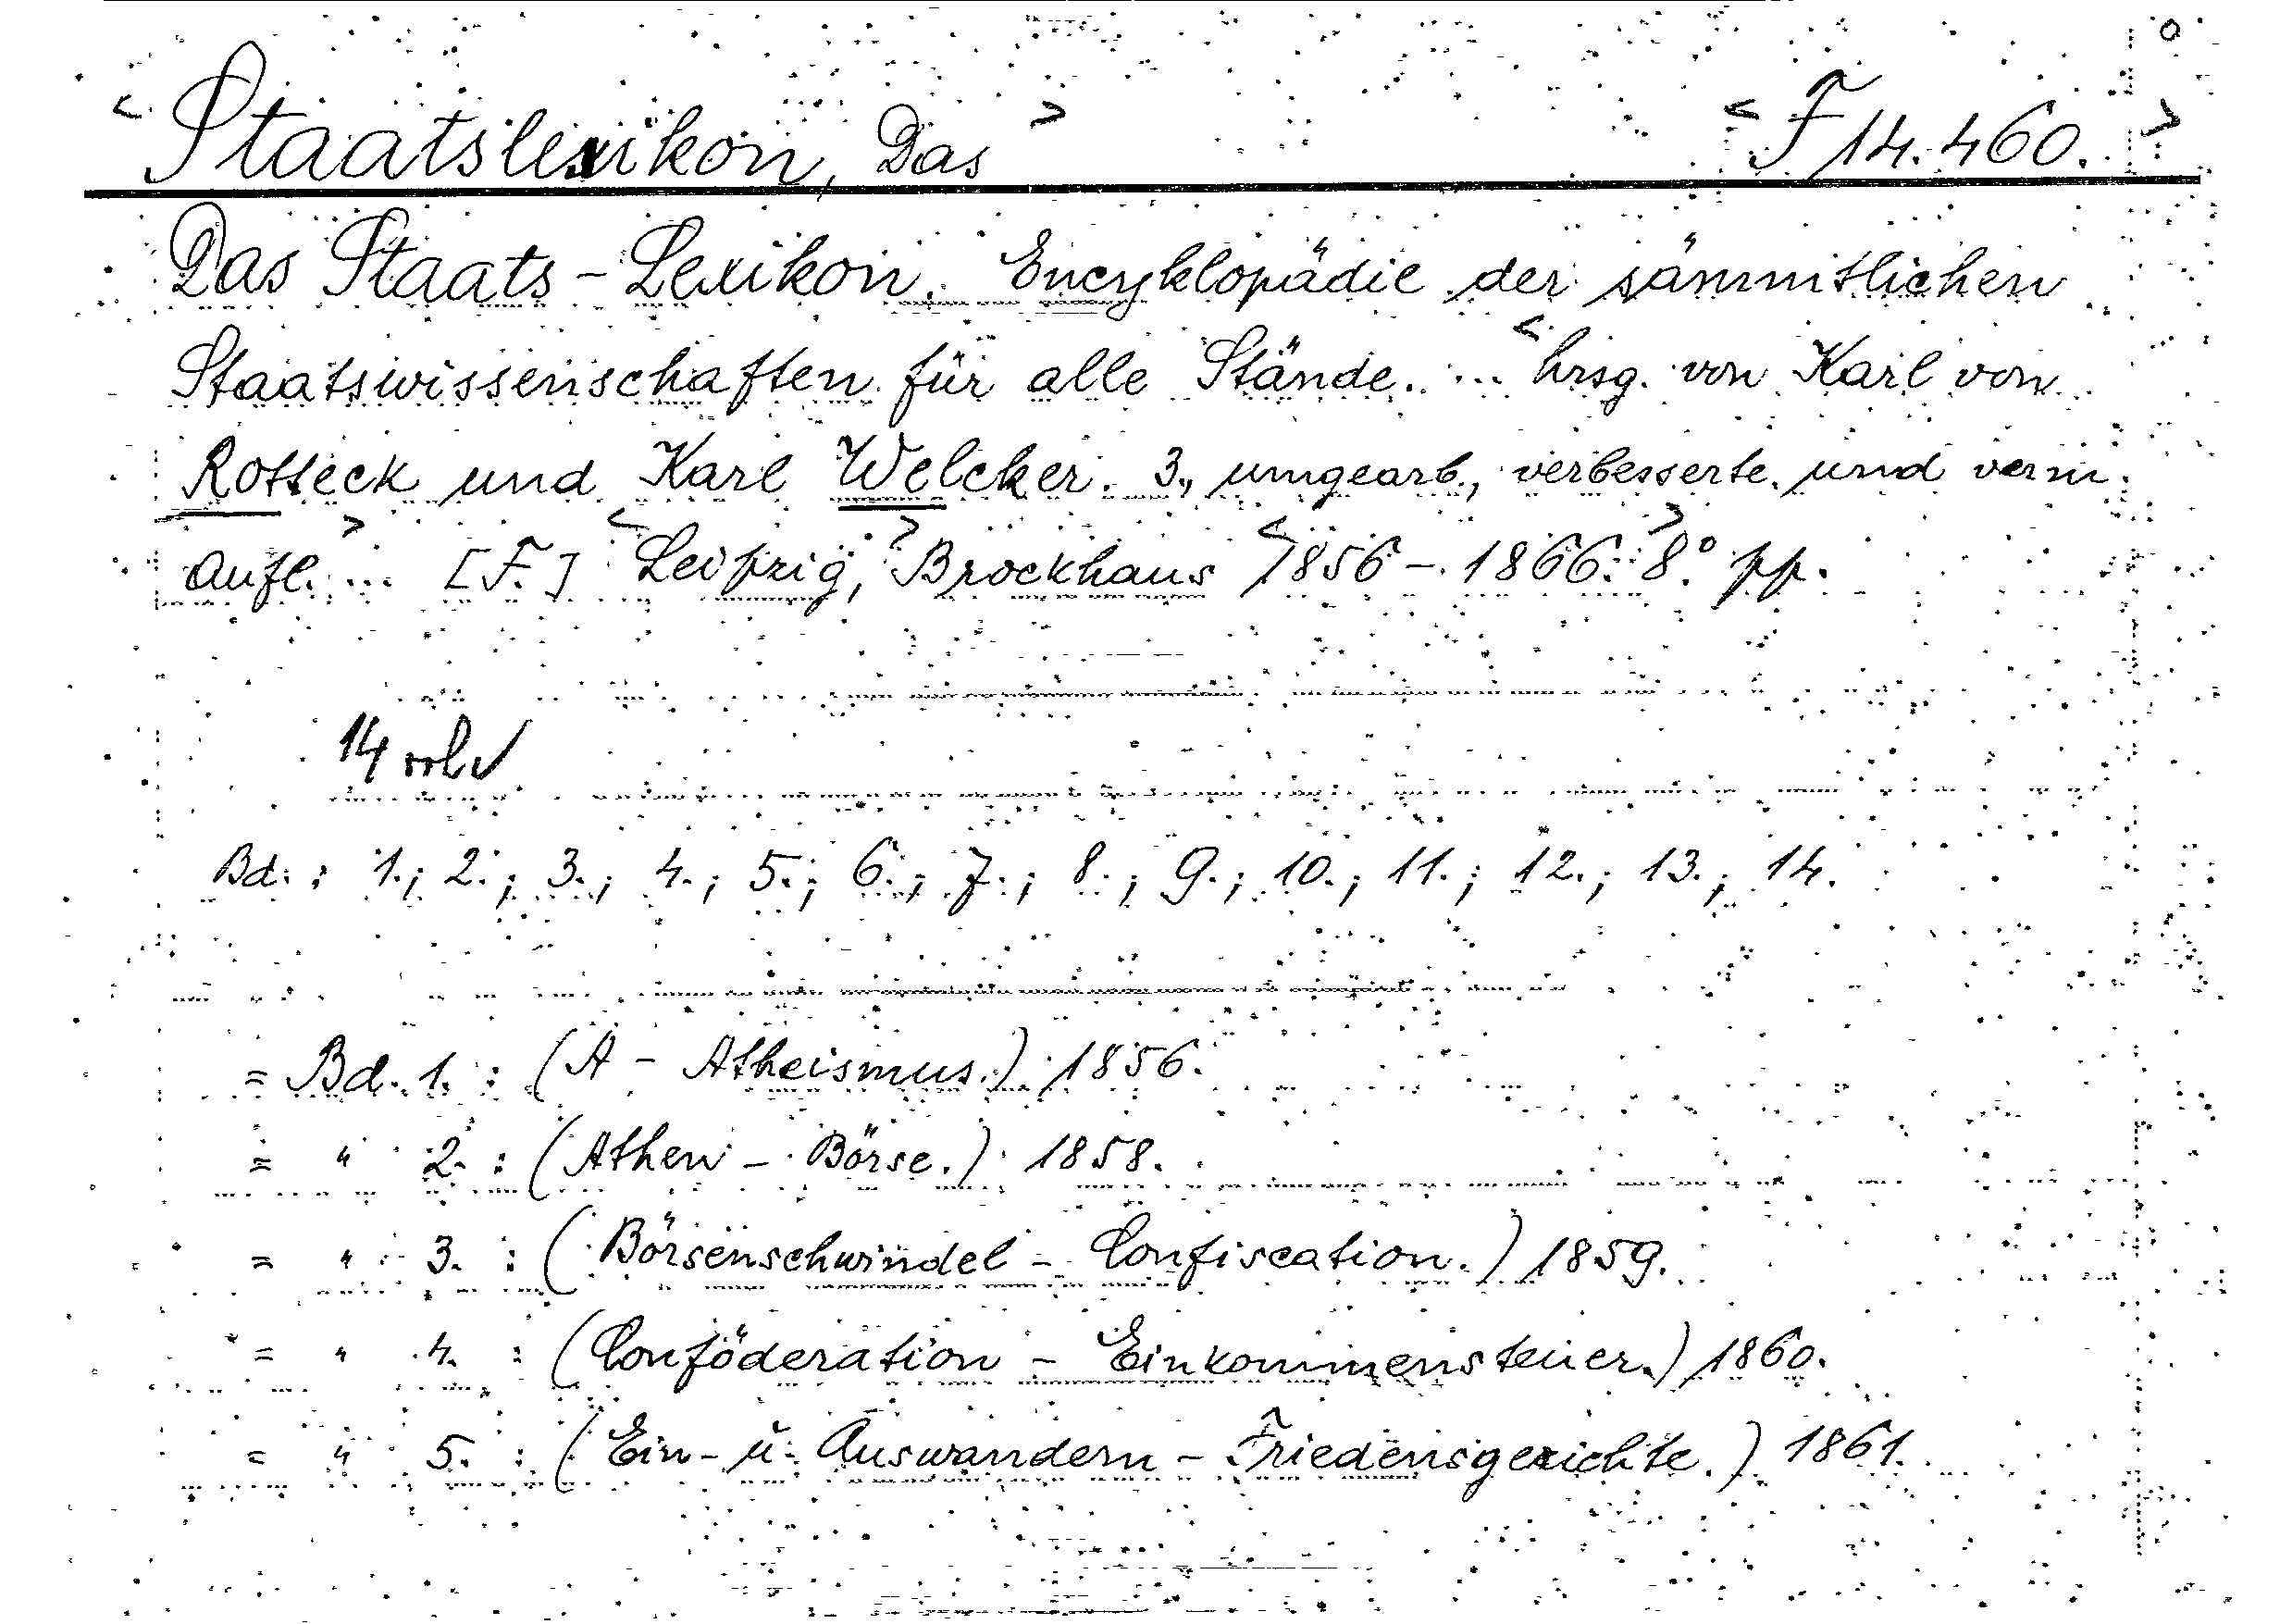 < Staatslexikon, Das > < F 14.460. >
Das Staats-Lexikon. Encyklopädie der sämmtlichen
Staatswissenschaften für alle Stände. ... < hrsg. von Karl von
Rotteck und Karl Welcker. 3., umgearb., verbesserte und verm.
Aufl. > ... [F.] < Leipzig, > Brockhaus < 1856-1866. > 8° pp.
14 vol ✓
Bd.: 1.; 2.; 3.; 4.; 5.; 6.; 7.; 8.; 9.; 10.; 11.; 12.; 13.; 14.
= Bd. 1. : (A - Atheismus.) 1856.
= " 2. : (Athen - Börse.) 1858.
= " 3. : (Börsenschwindel - Confiscation.) 1859.
= " 4. : (Conföderation - Einkommensteuer.) 1860.
= " 5. : (Ein- u. Auswandern - Friedensgerichte.) 1861.